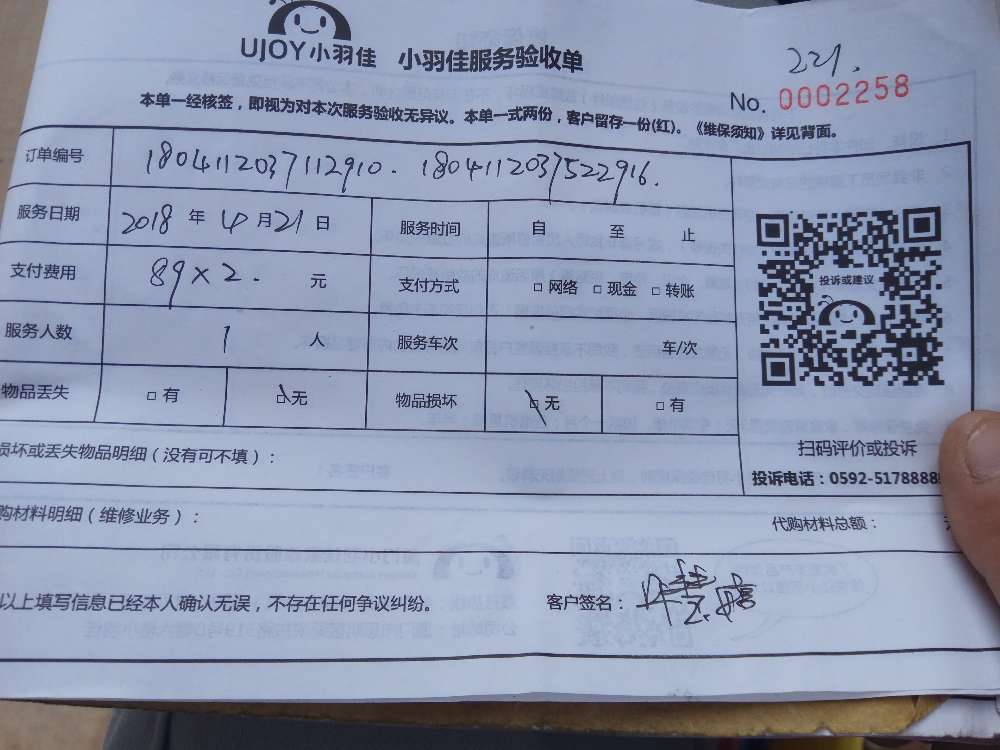 UJOY小羽佳 小羽佳服务验收单
221.
No. 0002258
本单一经核签，即视为对本次服务验收无异议。本单一式两份，客户留存一份(红)。《维保须知》详见背面。
订单编号 1804112037112910. 1804112037522916.
服务日期 2018 年 4 月 21 日 服务时间 自 至 止
支付费用 89×2. 元 支付方式 □ 网络 □ 现金 □ 转账
服务人数 1 人 服务车次 车/次
物品丢失 □ 有 □无 物品损坏 □ 无 □ 有
投诉或建议
扫码评价或投诉
投诉电话：0592-5178888
损坏或丢失物品明细（没有可不填）：
购材料明细（维修业务）： 代购材料总额：
以上填写信息已经本人确认无误，不存在任何争议纠纷。 客户签名：